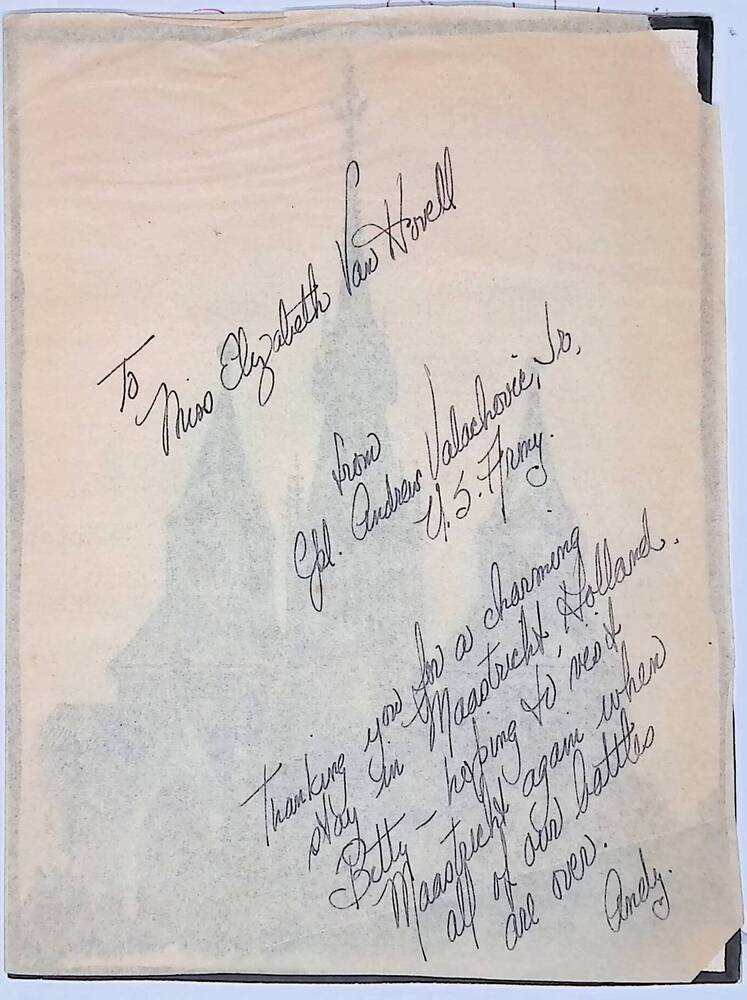 To
Miss Elizabeth Van Hövell
from
Cpl. Andrew Valachovic, Jr.
U.S. Army.
Thanking you for a charming
stay in Maastricht, Holland.
Betty — hoping to visit
Maastricht again when
all of our battles
are over.
Andy.